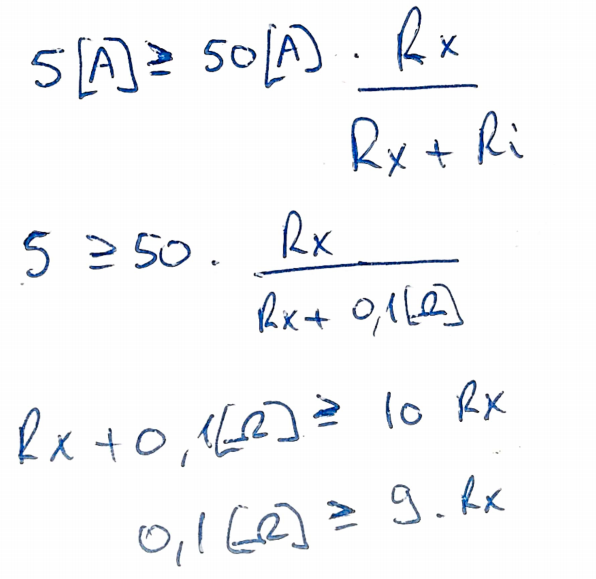 5[A] ≥ 50[A] · Rx / Rx + Ri
5 ≥ 50 · Rx / Rx + 0,1[Ω]
Rx + 0,1[Ω] ≥ 10 Rx
0,1[Ω] ≥ 9 · Rx